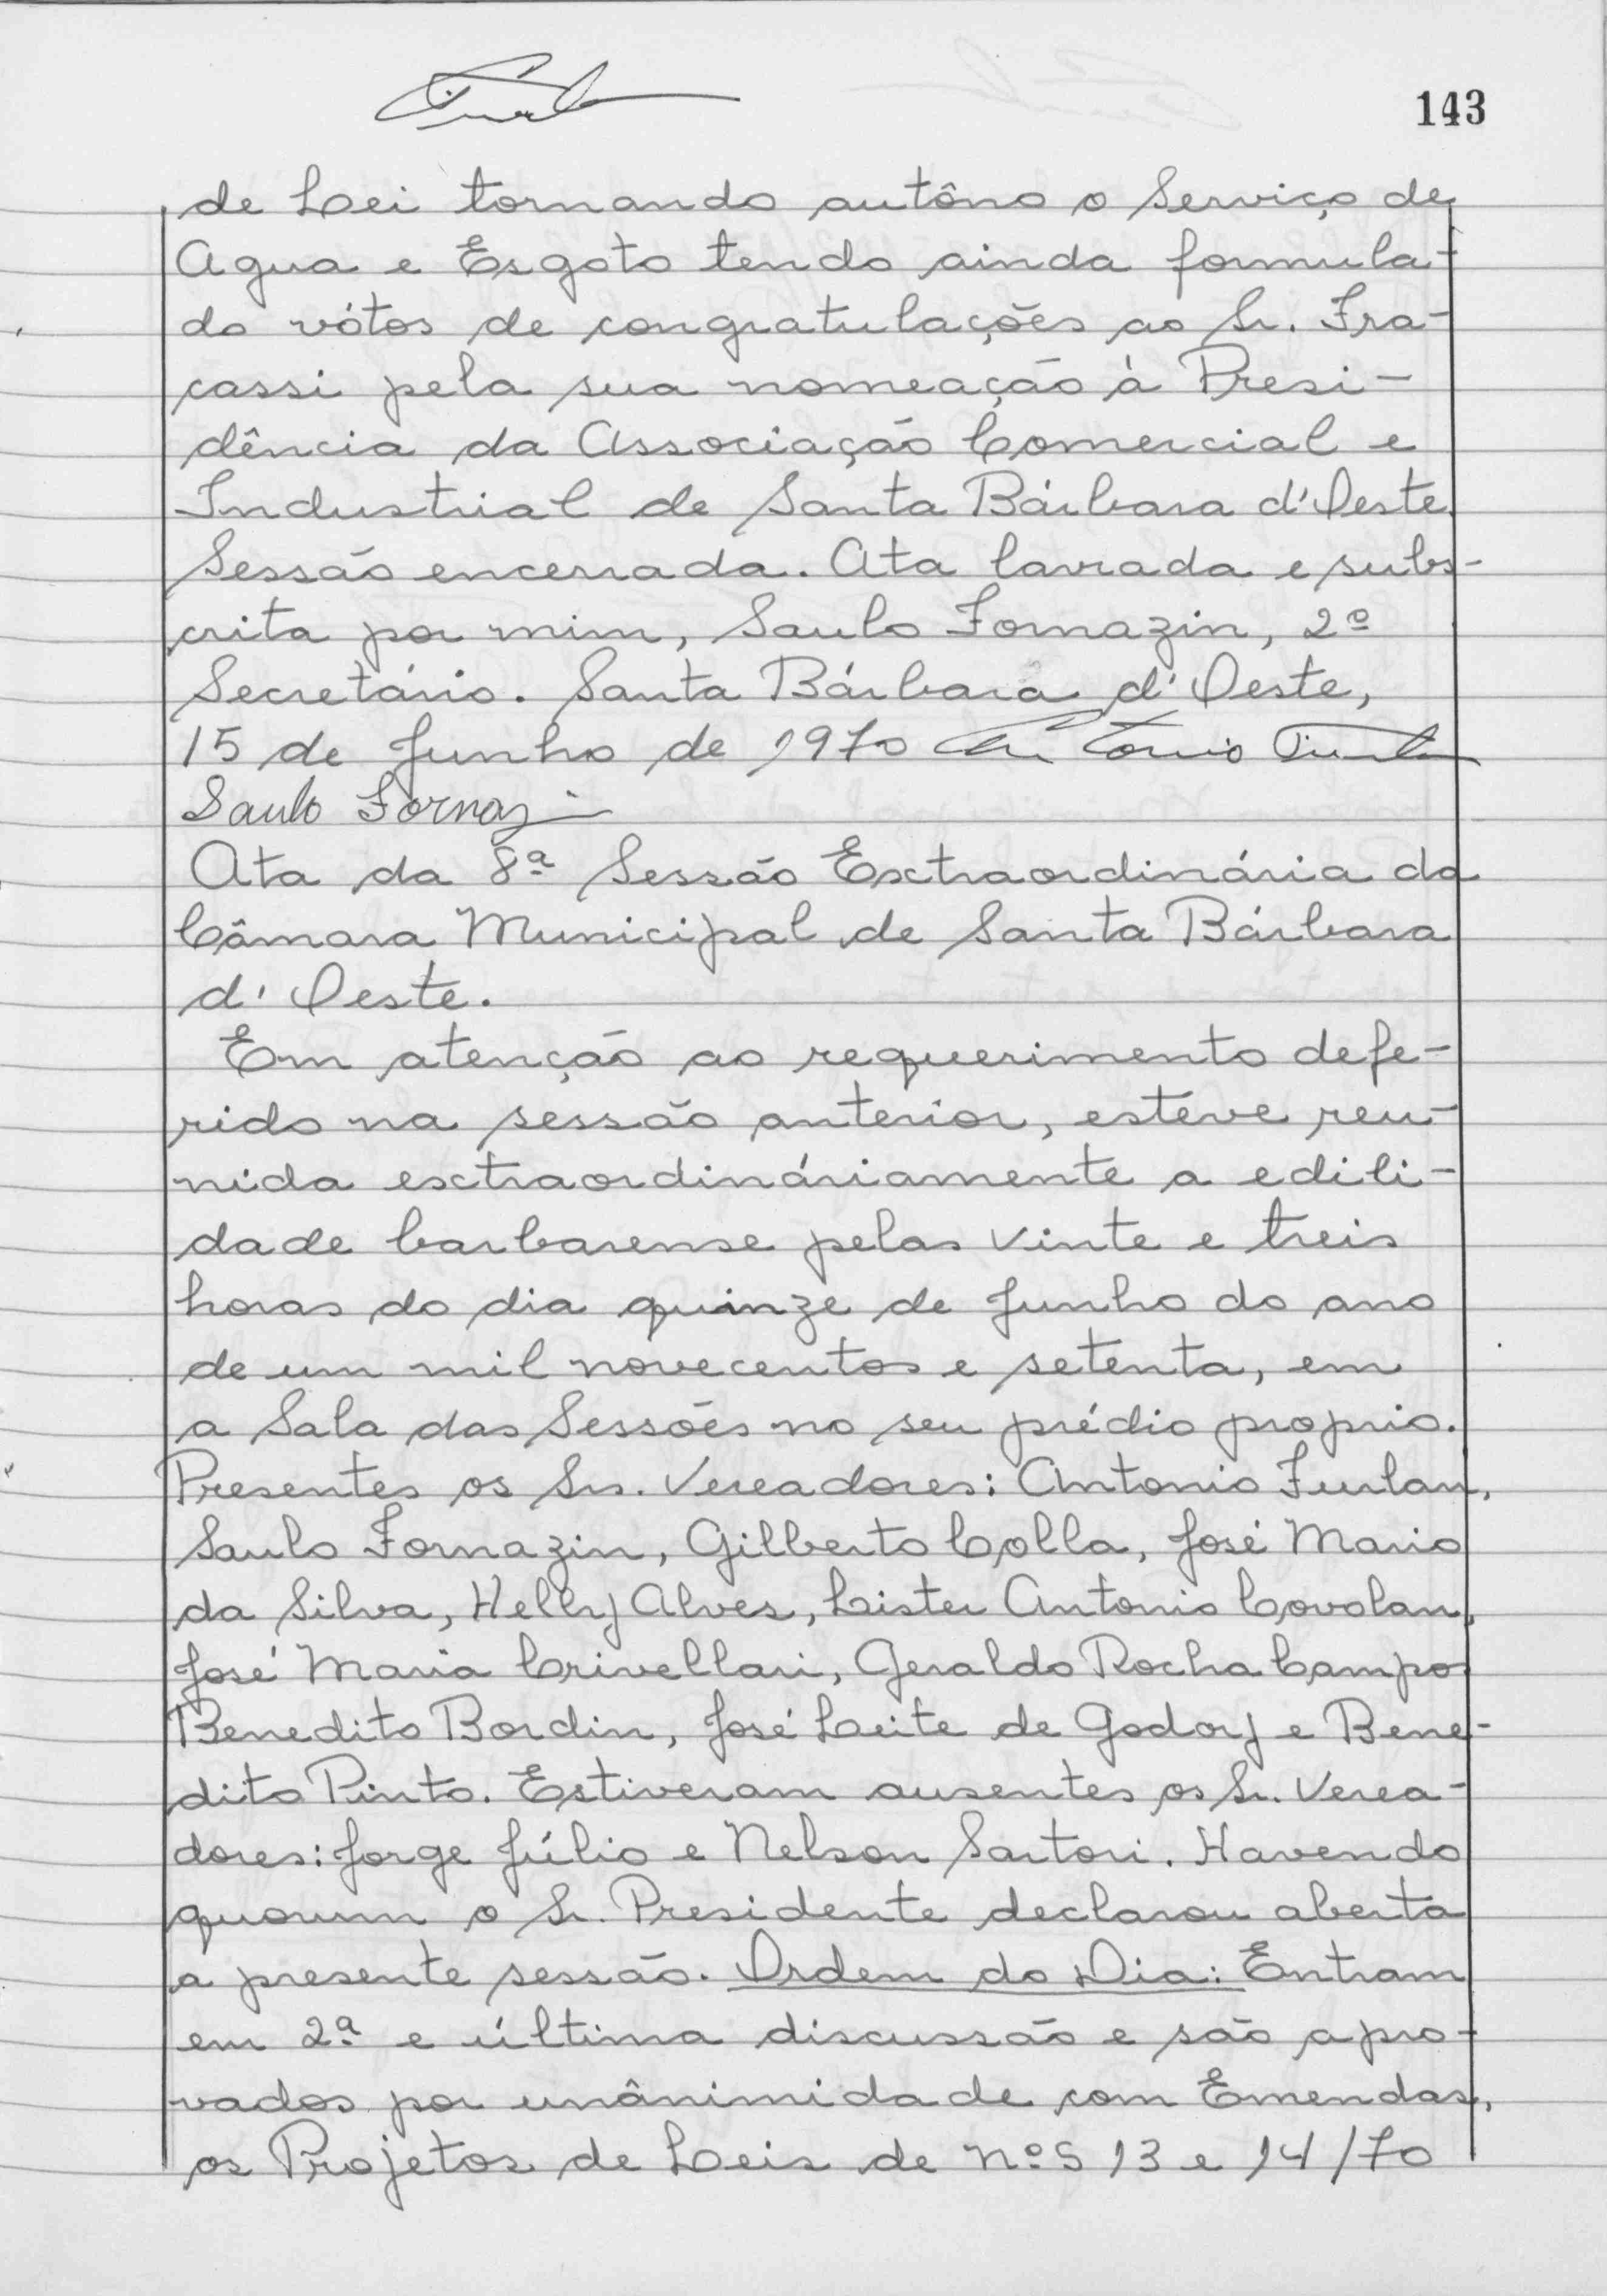 143
de Lei tornando autôno o Serviço de
Agua e Esgoto tendo ainda formula-
do vótos de congratulações ao Sr. Fra-
cassi pela sua nomeação à Presi-
dência da Associação Comercial e
Industrial de Santa Bárbara d'Oeste.
Sessão encerrada. Ata lavrada e subs-
crita por mim, Saulo Fornazin, 2º
Secretário. Santa Bárbara d'Oeste,
15 de Junho de 1970 Antonio Furlan
Saulo Fornazin
Ata da 8ª Sessão Extraordinária da
Câmara Municipal de Santa Bárbara
d'Oeste.
Em atenção ao requerimento defe-
rido na sessão anterior, estêve reu-
nida extraordináriamente a edili-
dade barbarense pelas vinte e treis
horas do dia quinze de Junho do ano
de um mil novecentos e setenta, em
a Sala das Sessões no seu prédio proprio.
Presentes os Srs. Vereadores: Antonio Furlan,
Saulo Fornazin, Gilberto Colla, José Mario
da Silva, Helly Alves, Lister Antonio Covolan,
José Maria Crivellari, Geraldo Rocha Campos
Benedito Bordin, José Leite de Godoy e Bene-
dito Pinto. Estiveram ausentes os Sr. Verea-
dores: Jorge Júlio e Nelson Sartori. Havendo
quorum o Sr. Presidente declarou aberta
a presente sessão. Ordem do Dia: Entram
em 2ª e última discussão e são apro-
vados por unânimidade com Emendas,
os Projetos de Leis de nºs 13 e 14/70